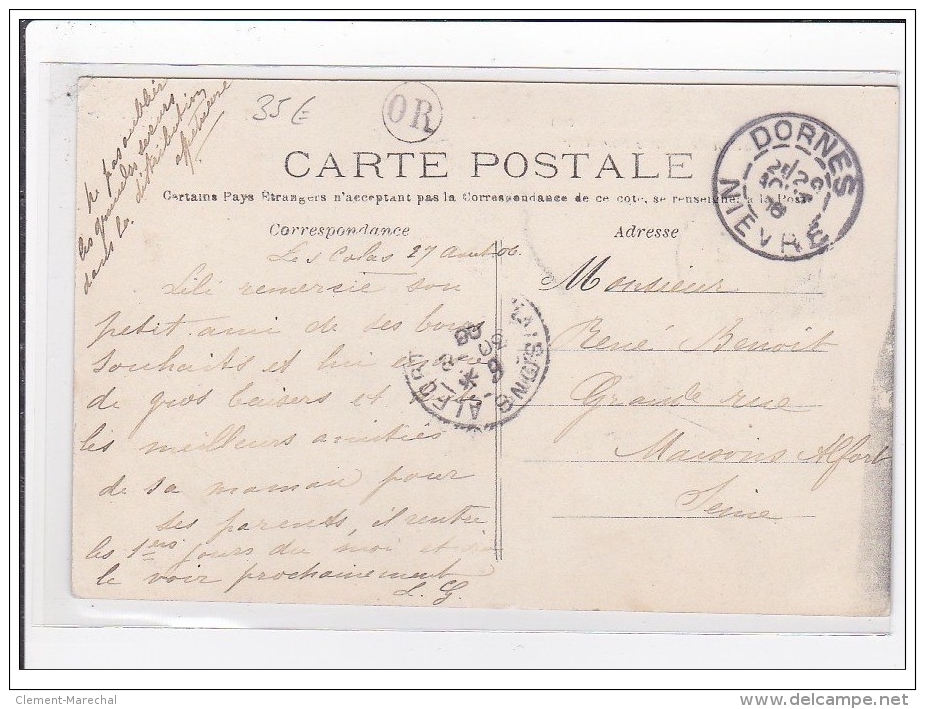 Ne pas oublier
les grandes sœurs
dans la distribution
35 €
OR
CARTE POSTALE
Certains Pays Étrangers n'acceptant pas la Correspondance de ce coté, se renseigner à la Poste
Correspondance
Adresse
DORNES
NIÈVRE
Les Colas 27 Août 06.
Lili remercie son
petit ami de ses bons
souhaits et lui envoie
de gros baisers et
les meilleurs amitiés
de sa maman pour
ses parents, il rentre
les 1ers jours du moi et
le voir prochainement
L. G.
MAISONS-ALFORT
Monsieur
René Benoit
Grande rue
Maisons Alfort
Seine
Clement-Marechal
www.delcampe.net